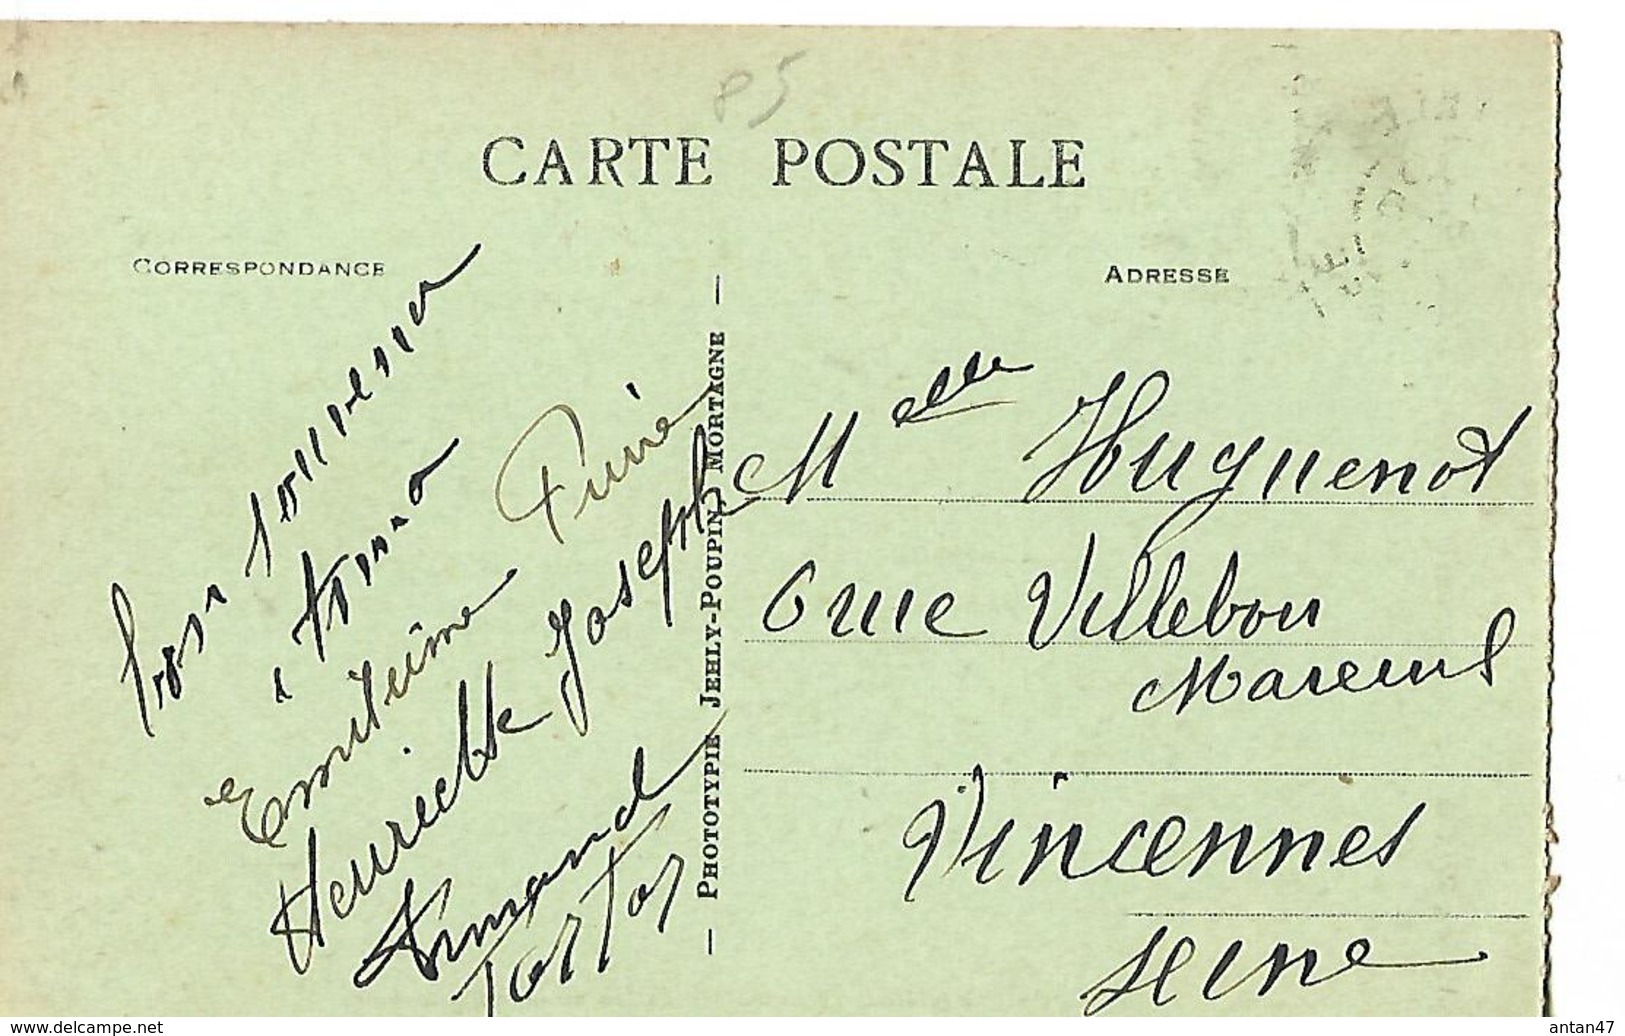 85
CARTE POSTALE
CORRESPONDANCE
ADRESSE
bons souvenirs
Henriette Joseph
Armand
— PHOTOTYPIE JEHLY-POUPIN, MORTAGNE —
Melle Huguenot
6 rue Villebon
Mareuil
Vincennes
Seine
delcampe.net
antan47